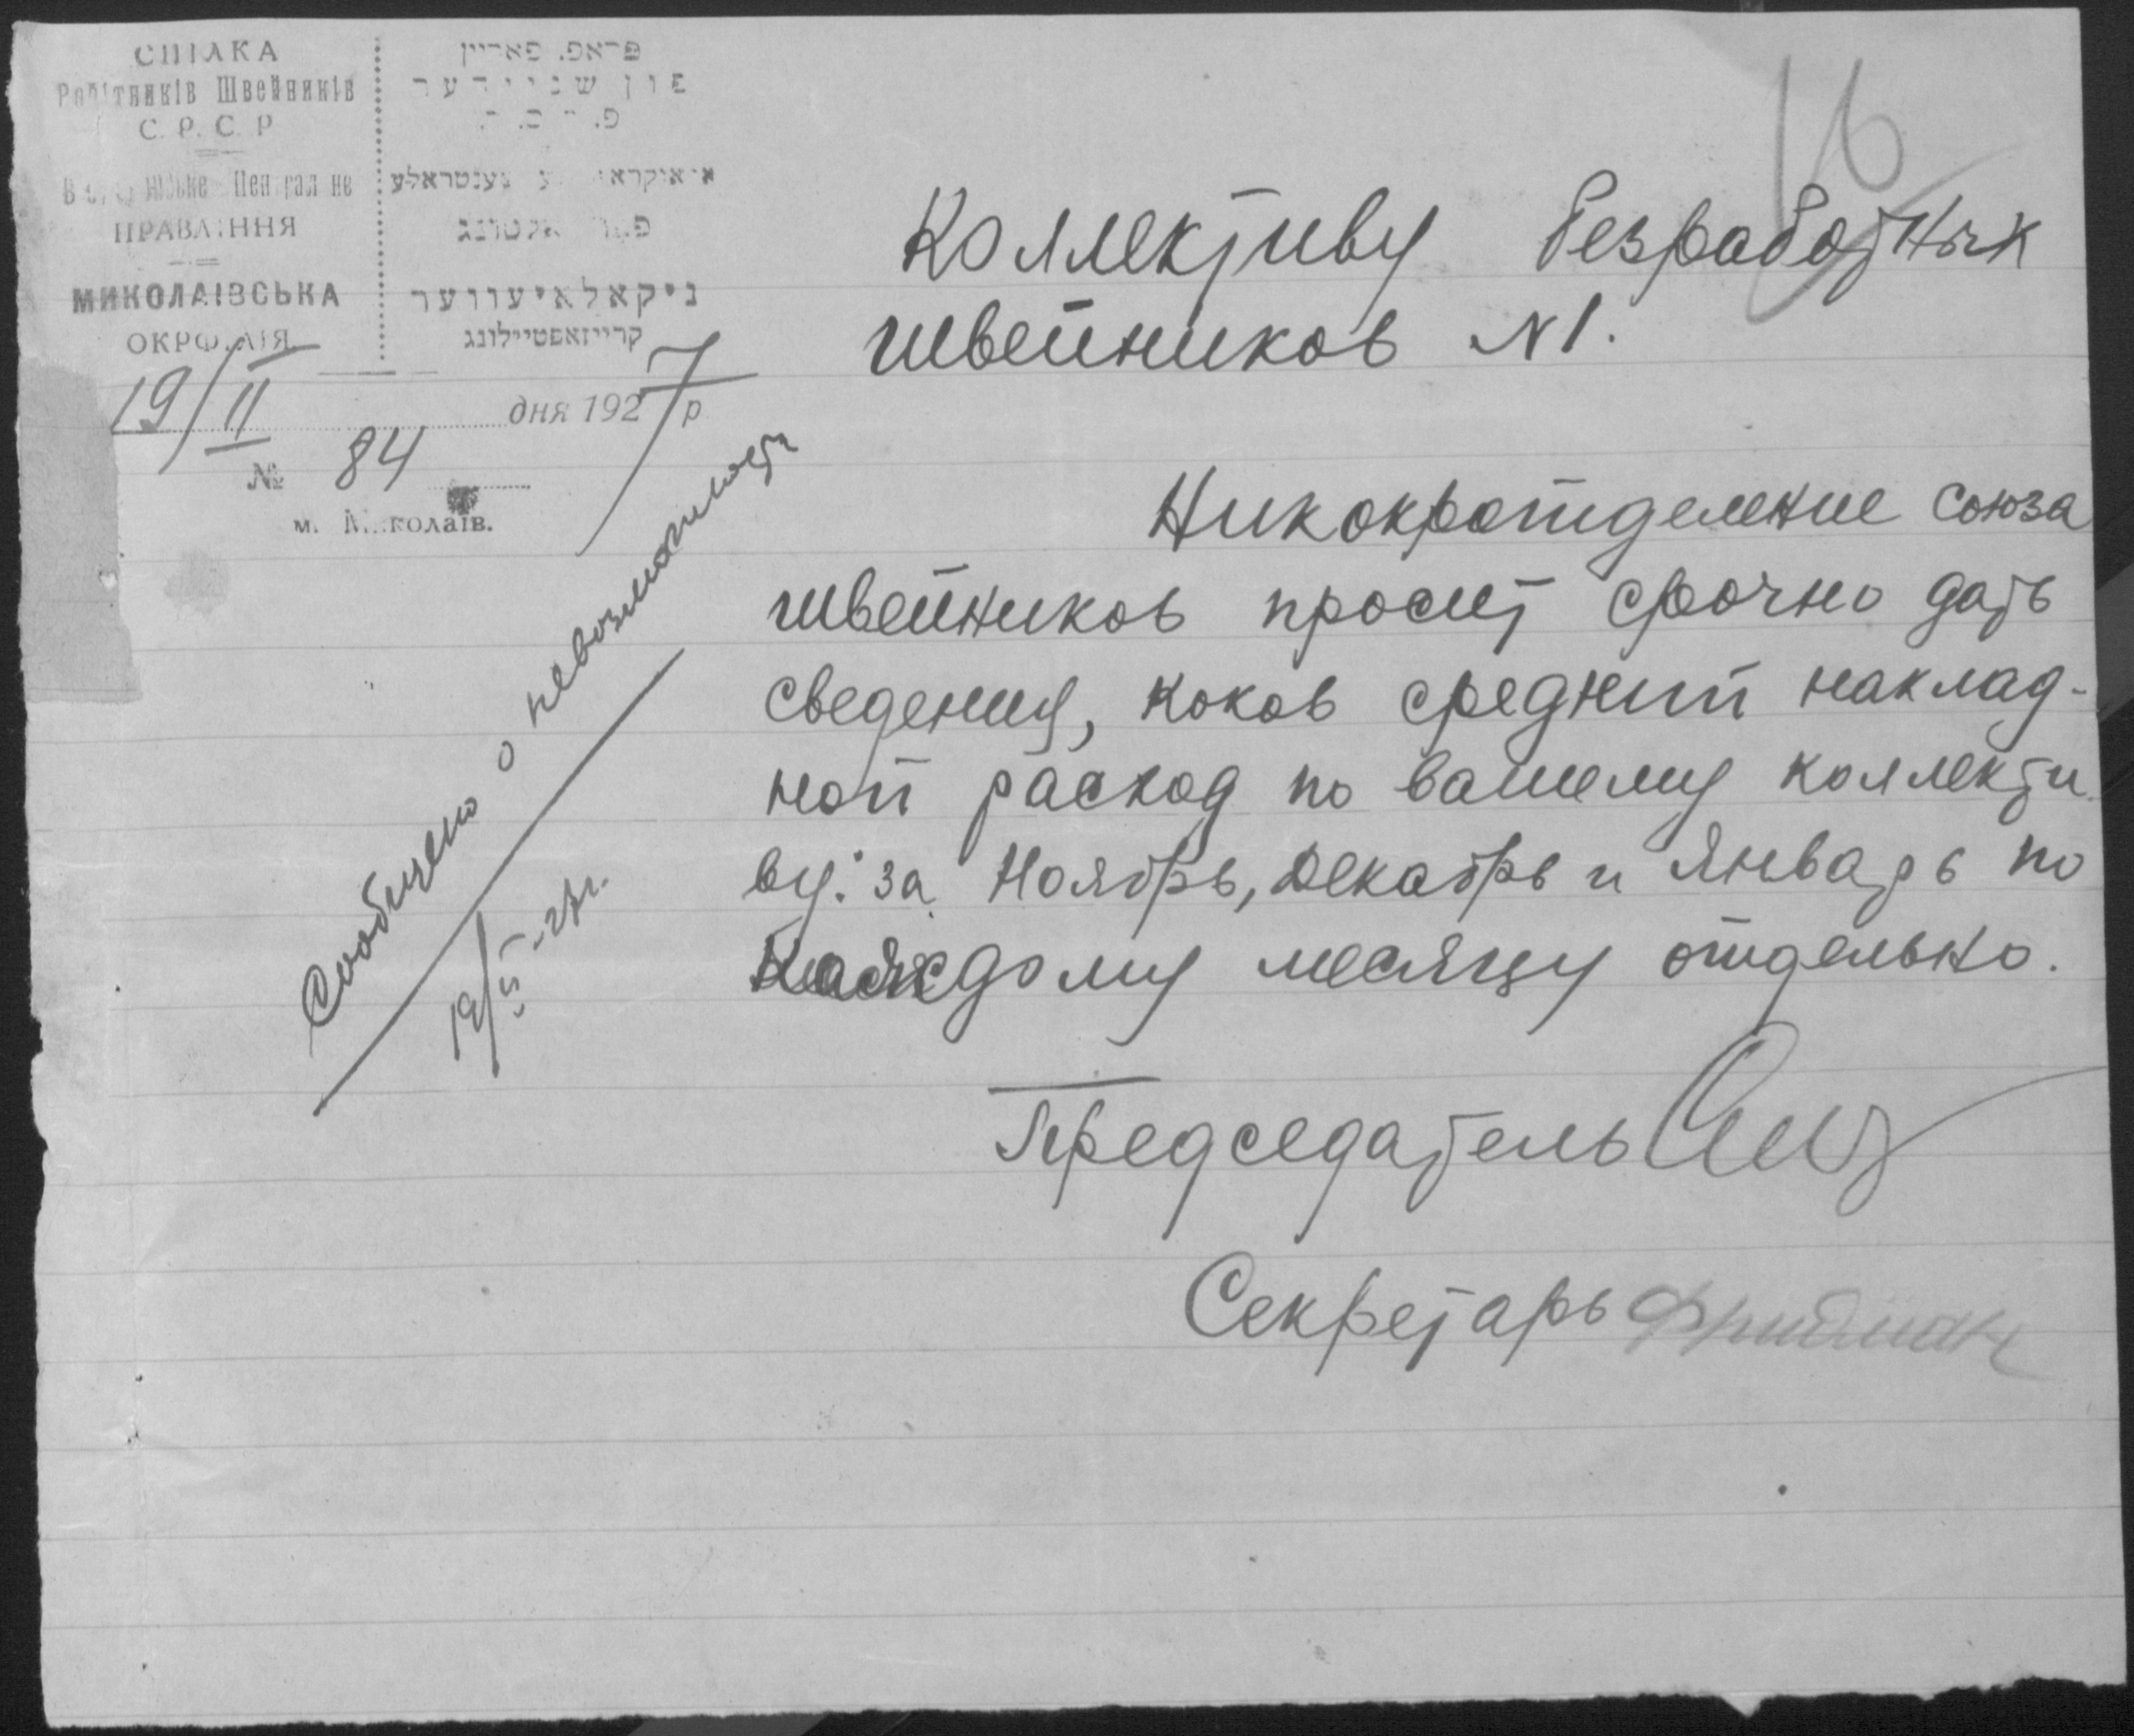 СПІЛКА
Робітників Швейників
С. Р. С. Р
ПРАВЛІННЯ
МИКОЛАІВСЬКА
ОКРФІЛІЯ
פראפ. פאריין
פון שניידער
ניקאלאיעווער
קרייזאפטיילונג
19/II дня 1927 р
№ 84
м. Миколаїв.
16
Коллективу безработных
швейников N 1.
Никокротделение союза
швейников просит срочно дать
сведения, каков средний наклад-
ной расход по вашему коллекти
ву: за Ноябрь, Декабрь и Январь по
каждому месяцу отдельно.
Председатель
Секретарь Фридман
Сообщено о невозможности
19/II-27г.